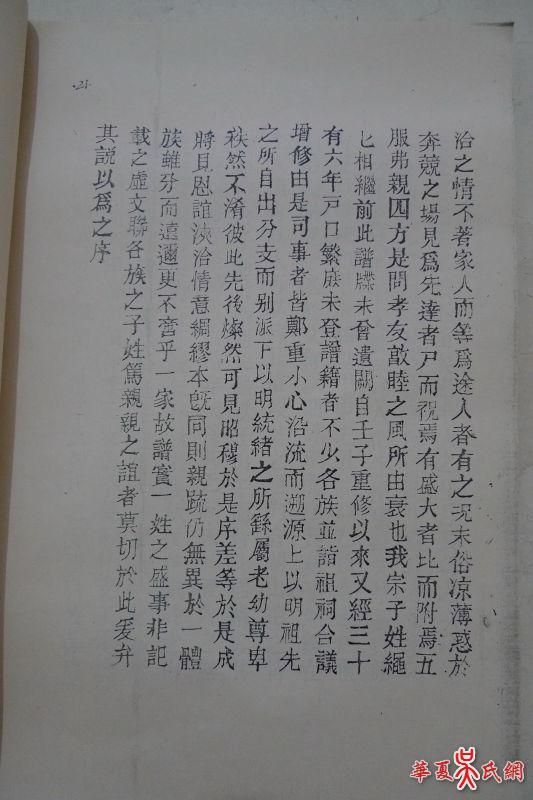 21
洽之情不著家人而等爲途人者有之况末俗凉薄惑於
奔競之場見爲先達者尸而視焉有盛大者比而附焉五
服弗親四方是問孝友敦睦之風所由衰也我宗子姓繩
七相繼前此譜牒未曾遺闕自壬子重修以來又經三十
有六年戸口繁庶未登譜籍者不少各族並詣祖祠合議
增修由是司事者皆鄭重小心沿流而遡源上以明祖先
之所自出分支而别派下以明統緒之所繇屬老幼尊卑
秩然不淆彼此先後燦然可見昭穆於是序差等於是成
將見恩誼浹洽情意綢繆本旣同則親䟽仍無異於一體
族雖分而遠邇更不啻乎一家故譜實一姓之盛事非記
載之虛文聯各族之子姓篤親親之誼者莫切於此爰弁
其説以爲之序
華夏吴氏網